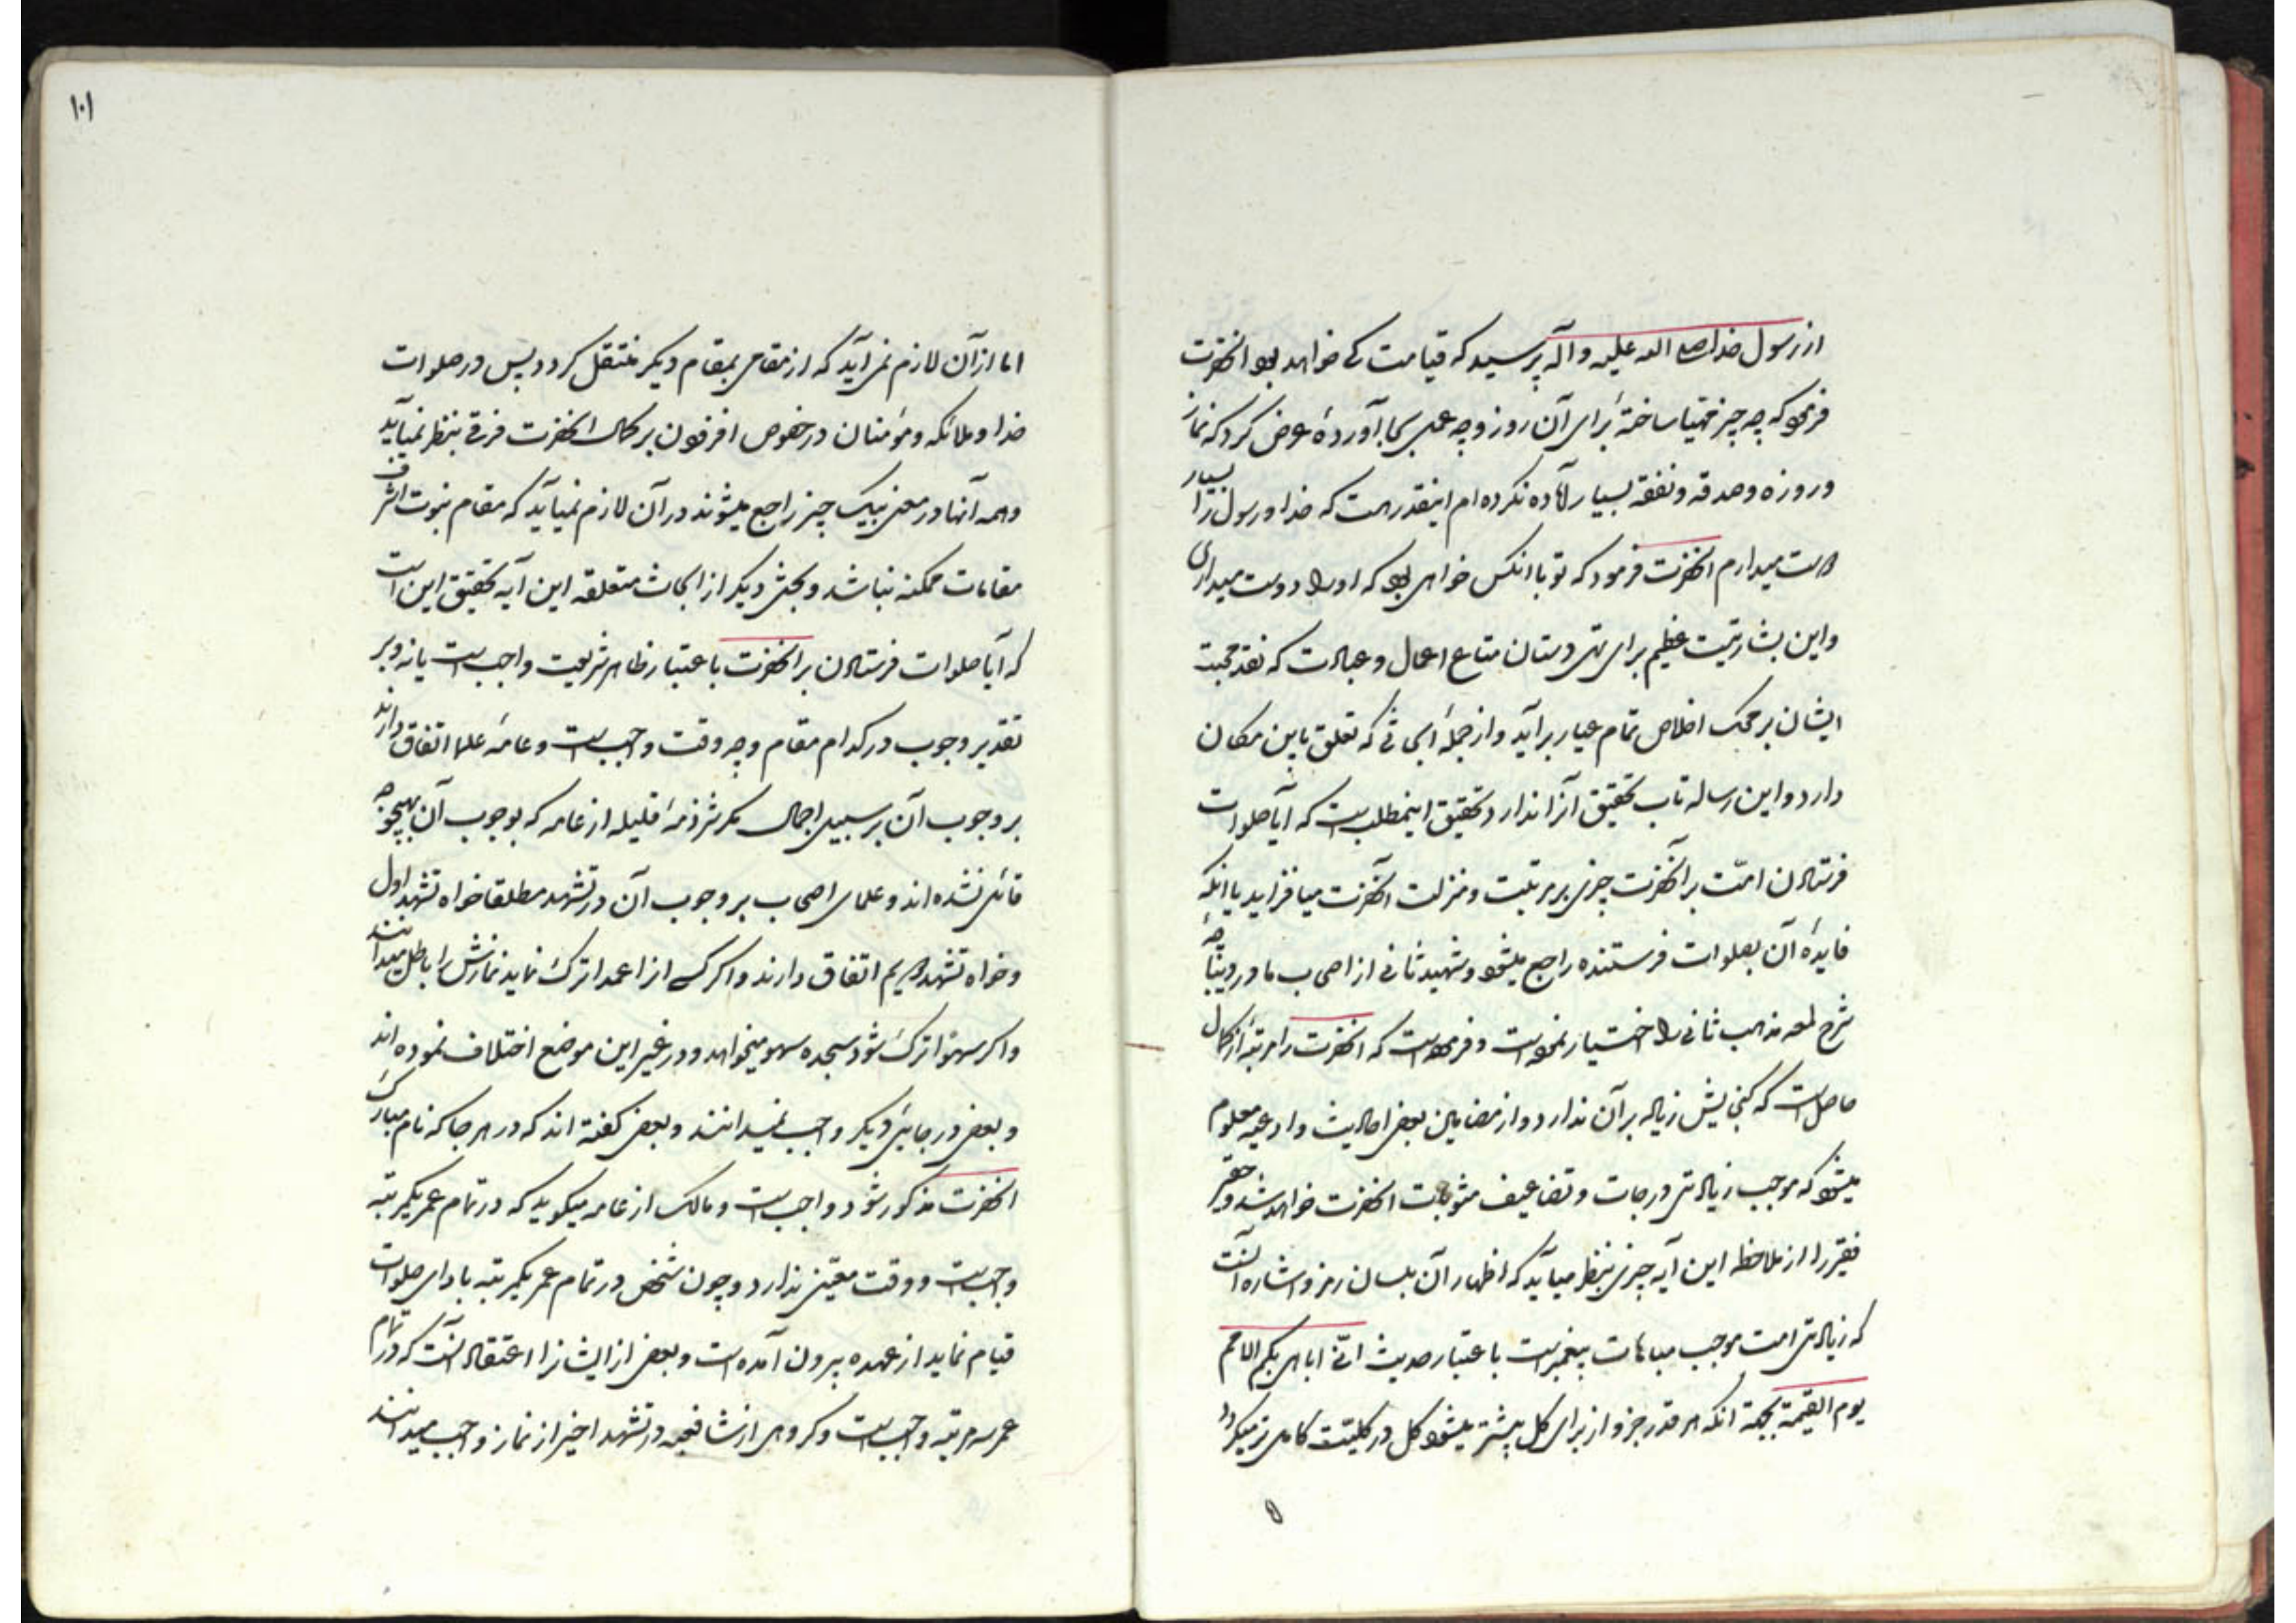 از رسول خدا صلی الله علیه و آله پرسید که قیامت کی خواهد بود انحضرت
فرمود که چه چیز مهیا ساختهٔ برای آن روز و چه عملی بجا آوردهٔ عرض کرد که نماز
و روزه و صدقه و نفقه بسیار آماده نکرده ام اینقدر هست که خدا و رسول را بسیار
دوست میدارم انحضرت فرمود که تو با انکس خواهی بود که او را دوست میداری
و این بشارتیست عظیم برای تهی دستان متاع اعمال و عبادت که نقد محبت
ایشان بر محک اخلاص تمام عیار برآید و از جملهٔ ابحاثی که تعلق باین مکان
دارد و این رساله تاب تحقیق آنرا ندارد تحقیق اینمطلب است که آیا صلوات
فرستادن امّت بر آنحضرت چیزی بر مرتبت و منزلت آنحضرت میافزاید یا انکه
فایدهٔ آن بصلوات فرستنده راجع میشود و شهید ثانی از اصحاب ما در دیباچهٔ
شرح لمعه مذهب ثانی را اختیار نموده است و فرموده است که انحضرت را مرتبهٔ از کمال
حاصل است که گنجایش زیاده بر آن ندارد و از مضامین بعض احادیث و ادعیه معلوم
میشود که موجب زیادتی درجات و تضاعیف مثوبات انحضرت خواهد شد و حقیر
فقیر را از ملاحظه این آیه چیزی بنظر میآید که اظهار آن بلسان رمز و اشاره آنست
که زیادتی امت موجب مباهات پیغمبر است باعتبار حدیث انّی اباهی بکم الامم
یوم القیمة بجهة انکه هر قدر جزو از برای کل بیشتر میشود کل در کلیّت کامل تر میگردد
۱۰۱
اما از آن لازم نمی آید که از مقامی بمقام دیگر منتقل گردد پس در صلوات
خدا و ملائکه و مؤمنان در خصوص افزودن بر کمال انحضرت فرقی بنظر نمیآید
و همه آنها در معنی بیک چیز راجع میشوند و از آن لازم نمیآید که مقام نبوت اشرف
مقامات ممکنه نباشد و بحثی دیگر از ابحاث متعلقه این آیه تحقیق این است
که آیا صلوات فرستادن بر انحضرت باعتبار ظاهر شریعت واجب است یا نه و بر
تقدیر وجوب در کدام مقام و چه وقت واجب است و عامّه علما اتفاق دارند
بر وجوب آن بر سبیل اجمال مگر شرذمهٔ قلیله از عامه که بوجوب آن بهیچوجه
قائل نشده اند و علمای اصحاب بر وجوب آن در تشهد مطلقا خواه تشهد اول
و خواه تشهد دویم اتفاق دارند و اگر کسی انرا عمدا ترک نماید نمازش را باطل میدانند
و اگر سهواً ترک شود سجده سهو میخواهد و در غیر این موضع اختلاف نموده اند
و بعض در جائی دیگر واجب نمیدانند و بعض گفته اند که در هر جا که نام مبارک
انحضرت مذکور شود واجب است و مالک از عامه میگوید که در تمام عمر یکمرتبه
واجب است و وقت معیّنی ندارد و چون شخص در تمام عمر یکمرتبه بادای صلوات
قیام نماید از عهده بیرون آمده است و بعض از ایشانرا اعتقاد آنست که در تمام
عمر سه مرتبه واجب است و گروهی از شافعیه در تشهد اخیر از نماز واجب میدانند